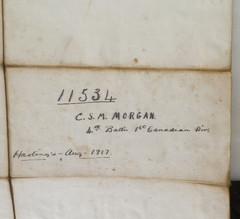 11534
C.S.M. MORGAN.
4th Battn 1st Canadian Div.
Hastings - Aug - 1917.